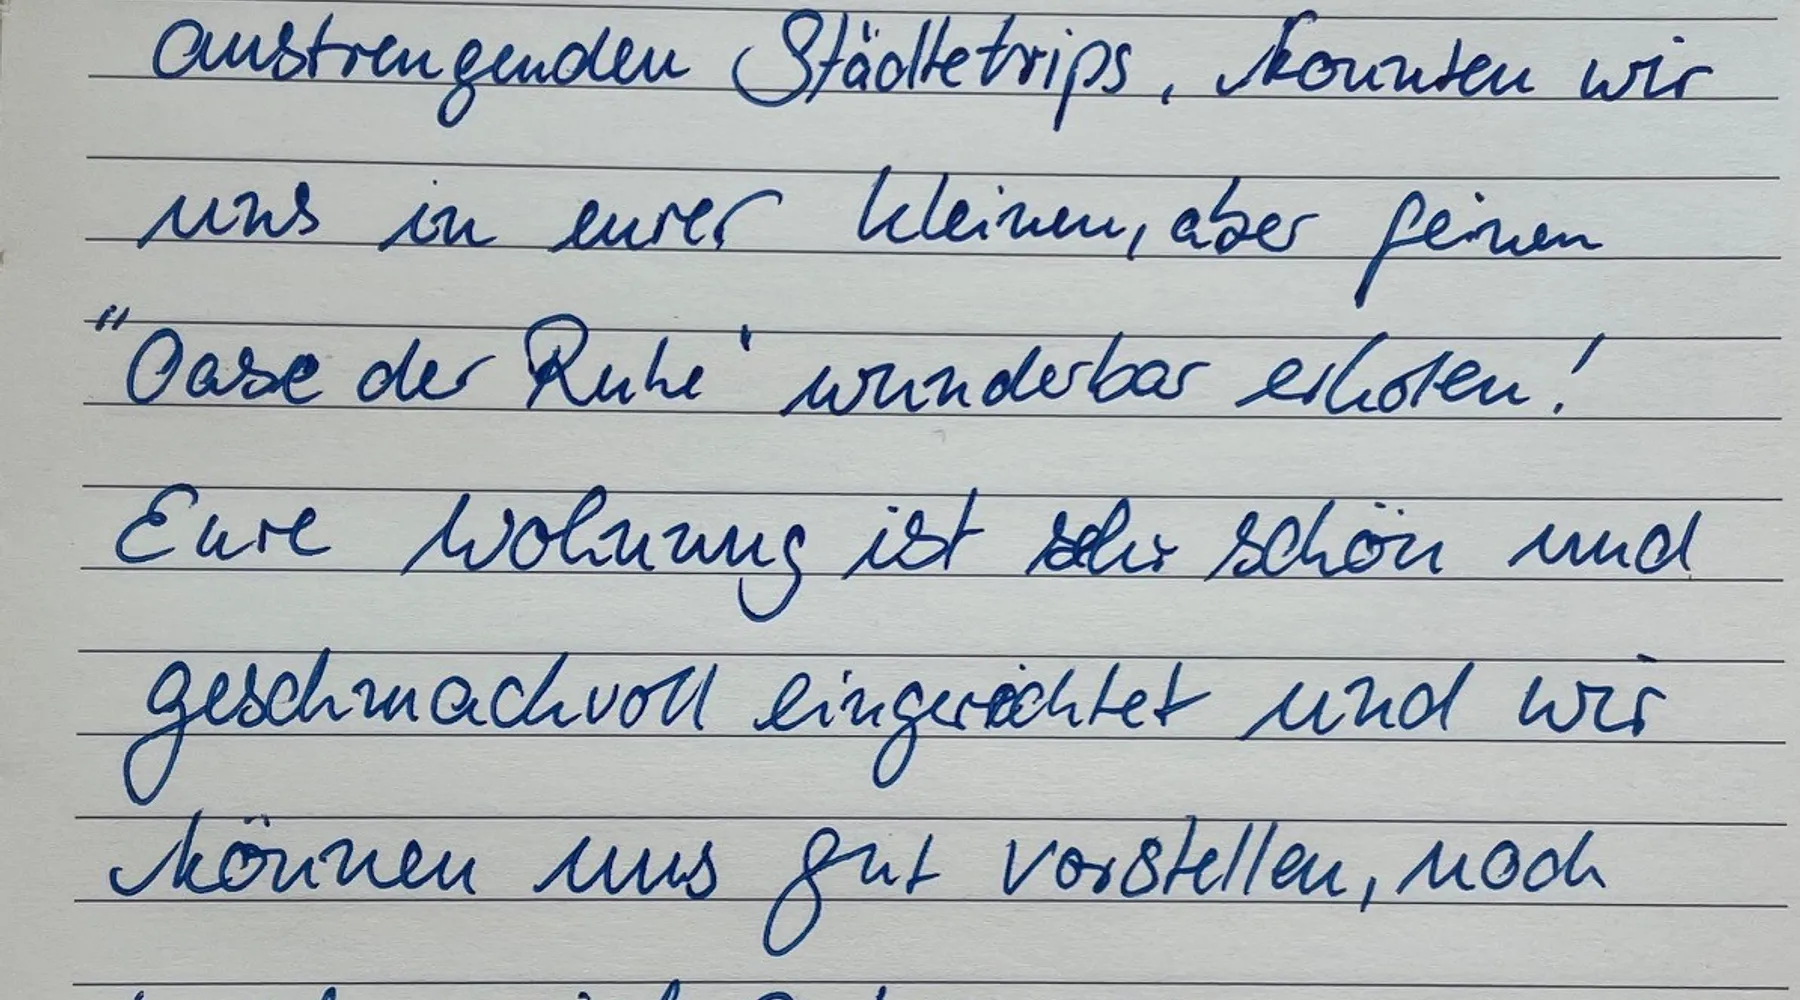 anstrengenden Städtetrips, konnten wir
uns in eurer kleinen, aber feinen
"Oase der Ruhe" wunderbar erholen!
Eure Wohnung ist sehr schön und
geschmackvoll eingerichtet und wir
können uns gut vorstellen, noch